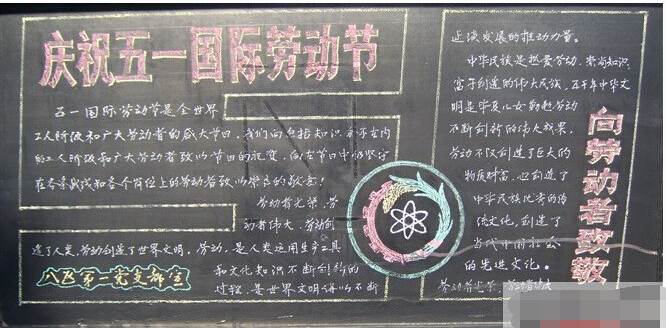 庆祝五一国际劳动节
五一国际劳动节是全世界
工人阶级和广大劳动者的盛大节日,我们向包括知识分子在内
的工人阶级和广大劳动者致以节日的祝贺,向在节日中仍坚守
在各条战线和各个岗位上的劳动者致以崇高的敬意!
劳动者光荣、劳
动者伟大、劳动创
造了人类,劳动创造了世界文明。劳动,是人类运用生产工具
和文化知识不断创新的
过程,是世界文明得以不断
八区第一党支部宣
近演发展的推动力量。
中华民族是热爱劳动、崇尚知识、
富于创造的伟大民族,五千年中华文
明是华夏儿女勤勉劳动
不断创新的伟大成果,
劳动不仅创造了巨大的
物质财富,也创造了
中华民族优秀的传
统文化,创造了
当代中国社会
的先进文化。
劳动者光荣、劳动者伟大
向劳动者致敬